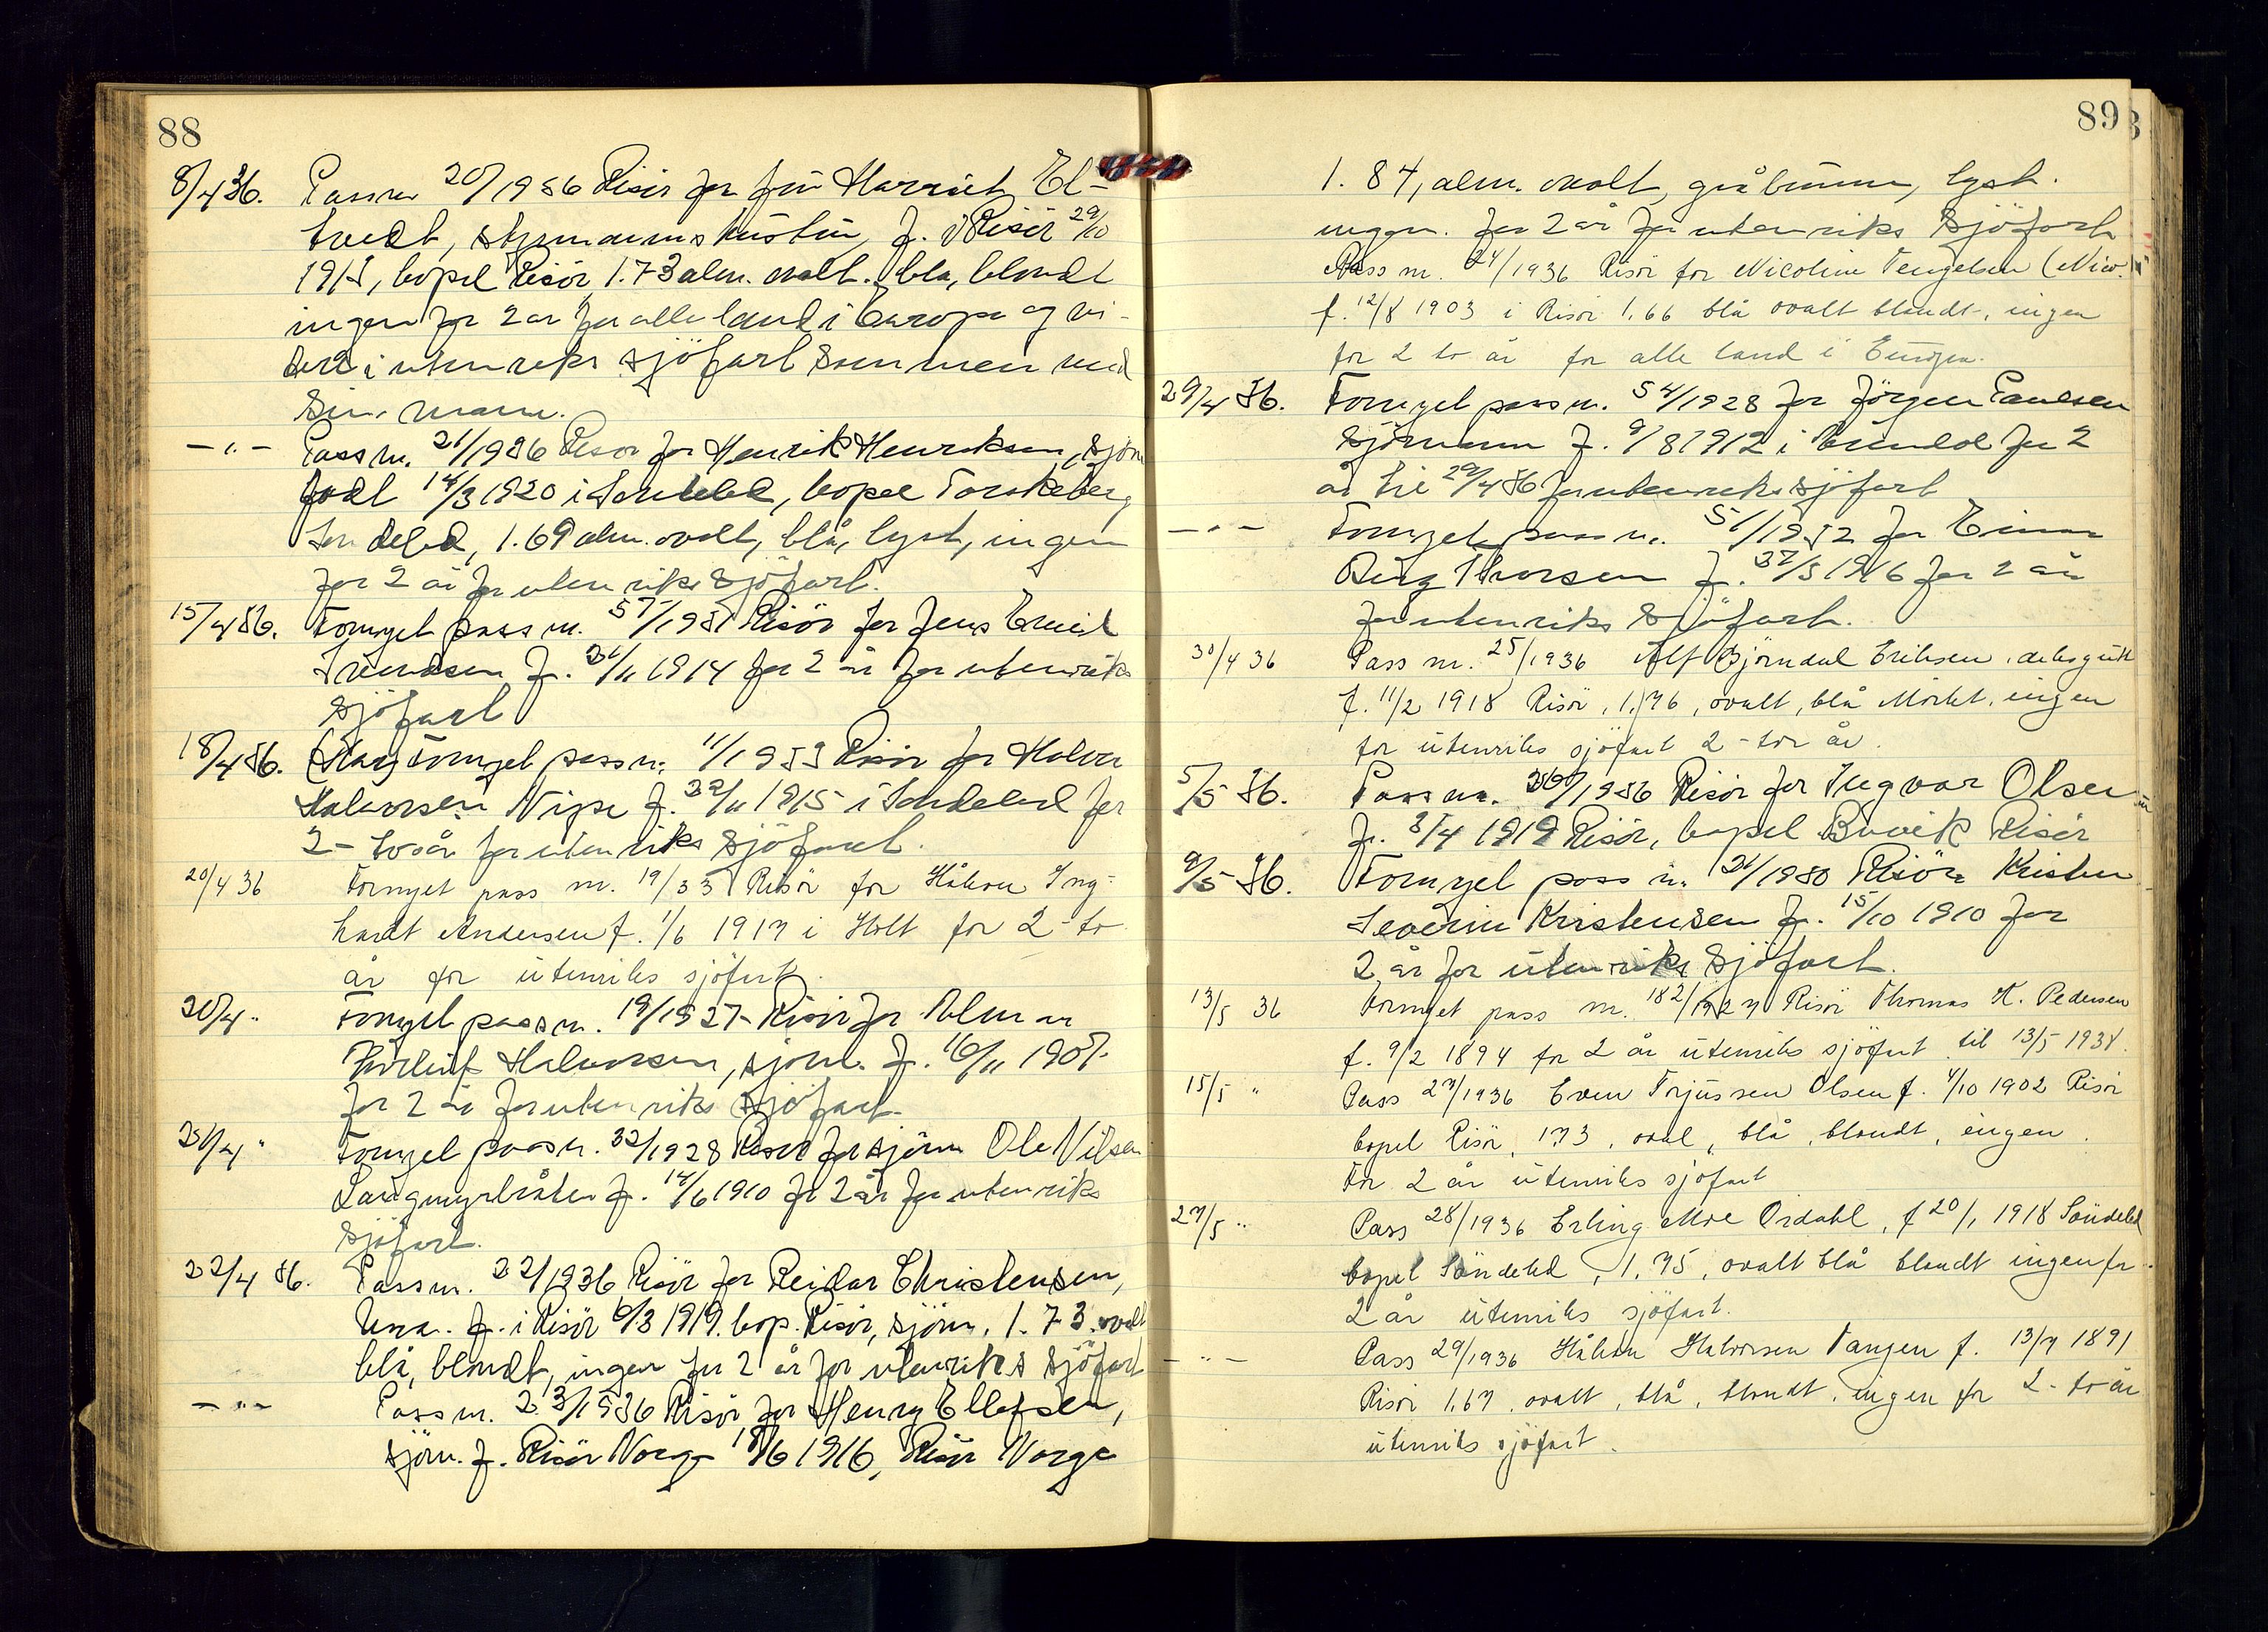 88
8/4 36. Passnr 20/1936 Risör for frü Harriet El-
tvedt, styrmannshüstrü, f. i Risör 29/10
1915, bopel Risör, 1.73 alm. ovalt. blå, blondt
ingen for 2 år for alle land i Europa og vi-
dere i utenriks sjöfart sammen med
sin mann.
- " - Pass nr. 21/1936 Risör for Henrik Henriksen, sjöm
född 14/3 1920 i Söndeled, bopel Torskeberg
Söndeled, 1.69 alm. ovalt, blå, lyst, ingen
for 2 år for utenriks sjöfart.
15/4 36. Fornyet pass nr. 57/1931 Risör for Jens Emil
Svendsen f. 21/11 1914 for 2 år for utenriks
sjöfart
18/4 36. Fornyet pass nr. 11/1933 Risör for Halvor
Halvorsen Nipe f. 22/11 1915 i Söndeled for
2- to år for utenriks sjöfart.
20/4 36 Fornyet pass nr. 19/33 Risör for Håkon Ing-
hardt Andersen f. 1/6 1917 i Holt for 2-to
år for ütenriks sjöfart.
20/4 " Fornyet pass nr. 19/1927 Risör for Almar
Halvorsen, sjöm. f. 16/11 1907.
for 2 år for utenriks sjöfart.
21/4 " Fornyet pass nr. 32/1928 Risör for sjöm Ole Nilsen
Langmyrbråten f. 14/6 1910 for 2 år for utenriks
sjöfart.
22/4 36. Pass nr. 22/1936 Risör for Reidar Christensen,
f. i Risör 6/3 1919. bop. Risör, sjöm. 1.73 ovalt
blå, blondt, ingen for 2 år for utenriks sjöfart
- " - Pass nr. 23/1936 Risör for Henry Ellefsen,
sjöm. f. Risör Norge 18/6 1916, Risör Norge
89
1.84, alm. ovalt, gråbrünn, lyst.
ingen. for 2 år for utenriks sjöfart
Pass nr. 24/1936 Risör for Nicoline Tengelsen (Nico.
f. 12/8 1903 i Risör 1.66 blå ovalt blondt, ingen
for 2 to år for alle land i Eüropa.
29/4 36. Fornyet pass nr. 54/1928 for Jörgen Paulsen
Sjömann f. 9/8 1912 i for 2
år til 29/4 36 for utenriks sjöfart
- " - Fornyet pass nr. 51/1932 for Einar
Berg Thorsen f. 1916 for 2 år
for utenriks sjöfart.
30/4 36 Pass nr. 25/1936 Alf Björndal Eriksen, deksgütt
f. 11/2 1918 Risör, 1.76, ovalt, blå Mörkt, ingen
for ütenriks sjöfart 2-to år.
5/5 36. Pass nr. 26/1936 Risör for Ingvar Olsen
f. 3/4 1919 Risör, bopel Buvik Risör
9/5 36. Fornyet pass nr. 21/1930 Risör Kristen
Severin Kristensen f. 15/10 1910 for
2 år for ütenriks sjöfart.
13/5 36 Fornyet pass nr. 182/1927 Risör Thomas K. Pedersen
f. 9/2 1894 for 2 år ütenriks sjöfart til 13/5 1938.
15/5 " Pass 27/1936 Even Torjüssen Olsen f. 4/10 1902 Risör
bopel Risör, 173, oval, blå, blondt, ingen.
For 2 år ütenriks sjöfart
27/5 " Pass 28/1936 Erling Moe Ördahl, f 20/1 1918 Söndeled
bopel Söndeled, 1.75, ovalt blå blondt ingen for
2 år ütenriks sjöfart.
- " - Pass 29/1936 Håkon Halvorsen Tangen f. 13/7 1891
Risör 1.67, ovalt, blå, blondt, ingen for 2-to år
ütenriks sjöfart.